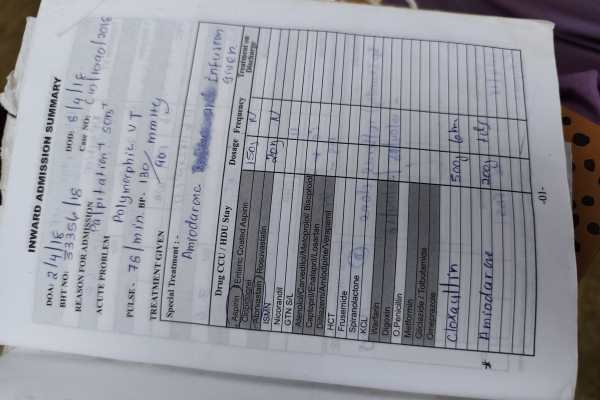 INWARD ADMISSION SUMMARY
DOA: 2/4/18 DOD: 8/4/18
BHT NO: 33356/18 Case NO:
REASON FOR ADMISSION Palpitation + SOB
ACUTE PROBLEM
Polymorphic VT
PULSE - 78/min. BP: 130/90 mmHg
TREATMENT GIVEN
Special Treatment : -
Amiodarone Infusion
given
Drug CCU / HDU Stay Dosage Frequency Treatment on Discharge
Aspirin / Enteric Coated Aspirin 150g N
Clopidogrel
Atorvastatin / Rosuvastatin 20g N
ISMN
Nicorandil
GTN S/L
Atenolol/Carvedilol/Metoprolol/ Bisoprolol
Captopril/Enalapril/Losartan
Diltiazem/Amlodipine/Verapamil
HCT
Frusemide
Spironolactone
KCL
Warfarin
Digoxin
O.Penicillin
Metformin
Gliclazide / Tolbutamide
Omeprazole
Cloxacillin 500g 6h
* Amiodarone 200g
-01-